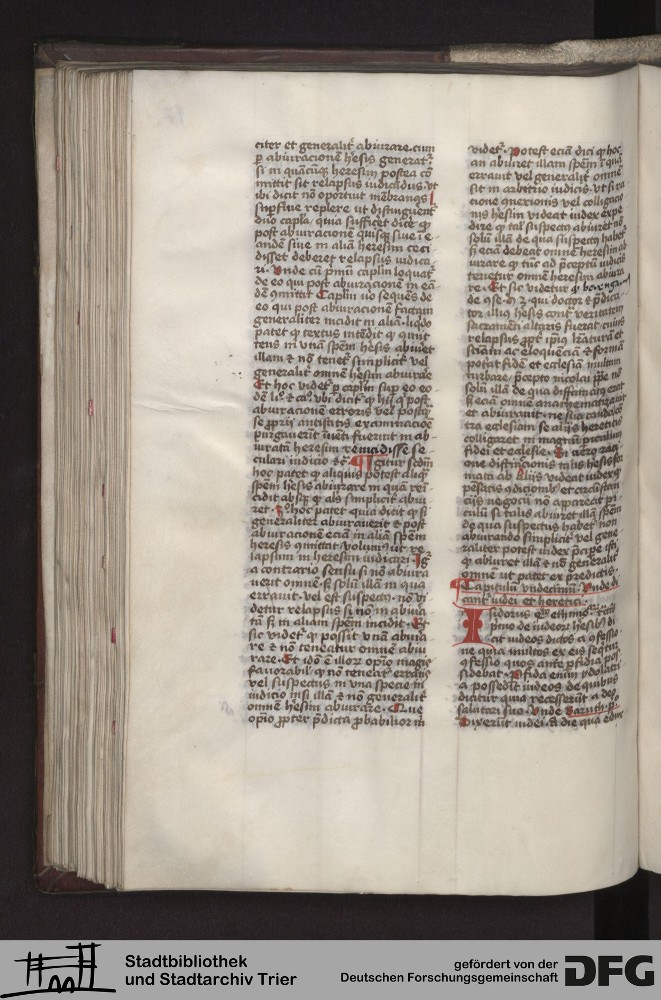 citer et generalit᷒ abiurare. cum
p̱ abiuracionē hesis generat᷒
si in quācūq heresim postea cō
mittit sit relapsus iudicādus. vt
ibi dicit nō oportuit mēbranas
sup flue replere ut distinguent᷒
duo capla. quia sufficet dicē q
post abiuracionē quisq siue ī e
andē siue in aliā heresim ceci
disset deberet relapsus iudica
ri. Vnde cū pmū caplm loquat᷒
de eo qui post abiuracionē in eā
dē ꝯmittit Caplm uo sequēs de
eo qui post abiuracionē factam
generaliter incidit in aliā. liqdo
patet q textus intēdit q ꝯmit
tens in vnā spēm hesis abiuret
illam et nō tenet᷒ simplicit᷒ vel
generalit᷒ omnē hesim abiurare
Et hoc videt᷒ p caplm sup eo eo
dē li. et ca. vbi dicit᷒ q hii q post
abiuracionē erroris vel postq
se prrii antistitis examinacioē
purgauerīt iuēti fuerint in ab
iuratā heresim reincidisse se
culari iudicio etc. Igitur scdm
hoc patet q aliquis potest aliq
spēm hesis abiurare in quā rei
cidit absq q als simplicit᷒ abiu
ret. hoc patet quia dicit q si
generaliter abiurauerit et post
abiuracionē eciā in aliā spēm
heresis ꝯmittat. volumus ut re
lapsum in heresim iudicari. Igr
a contrario sensu si nō abiura
uerit omnē. si solū illā in qua
errauit. vel est suspectus. nō vi
detur relapsus si nō in abiura
tā si in aliam spēm incidit. Et
sic videt᷒ q possit vnā abiura
re et nō teneatur omnē abiu
rare. Et ideo ē illor opinio magis
fauorabilis q nō teneat᷒ errans
vel suspectus in vna specie in
iudicio nisi illā et nō generalit᷒
omnem hesim abiurare. Que
opio propter pdicta pbabilior
videt᷒. Potest eciā dici q hoc
an abiuret illam spēm ī qua
errauit vel generalit᷒ omnē
sit in arbitrio iudicis. vt si ra
cione ꝯnexionis vel colligacio
nis hesim videat iudex expe
dire q tal suspectus abiuret nō
solū illā de qua suspectus habet᷒
si eciā debeat omnē heresim ab
iurare q tūc ad pceptū iudicis
tenetur omnē heresim abiura
re. Et sic videtur q berenga
de ꝯse. q doctor et pdica
tor illius hesis cont᷒ veritatem
sacramēti altaris fuerat. cuius
relapsus propt᷒ ipius lraturā et
sciam ac eloquēciā et formā
potat fidē et ecclesiā multum
turbare. pcepto nicolai ppe nō
solū illā de qua diffamatus erat
si eciā omnē anathematizauit
et abiurauit. ne sua caudā cō
tra eclesiam se aliis hereticis
colligaret in magnū piculum
fidei et eclesie. In vero racī
one distinctionis talis hesis for
mata ab aliis videat iudex q
pēsatis ꝯdicionib et circūstan
ciis negocii nō appareat pi
culū si talis abiuret illā spēm
de qua suspectus habet᷒ non
abiurando simplicit᷒ vel gene
raliter potest iudex pcipe isti
q abiuret illā et nō generalit᷒
omnē ut patet ex predictis.
Capitulū vndecimū. Vnde di
cant᷒ iudei et heretici.
Isidorus ethimo.
pmo de iudeor hesibus di
cit iudeos dictos a ꝯfessio
ne quia multos ex eis seqtur
ꝯfessio quos ante pfidia pos
sidebat. Pfida enim ydolatri
a possedit iudeos de quibus
dicitur quia recesserūt a deo
salutari suo. Vnde Baruth. p.
Dixerūt iudei. a die qua edux
Stadtbibliothek
und Stadtarchiv Trier
gefördert von der
Deutschen Forschungsgemeinschaft
DFG